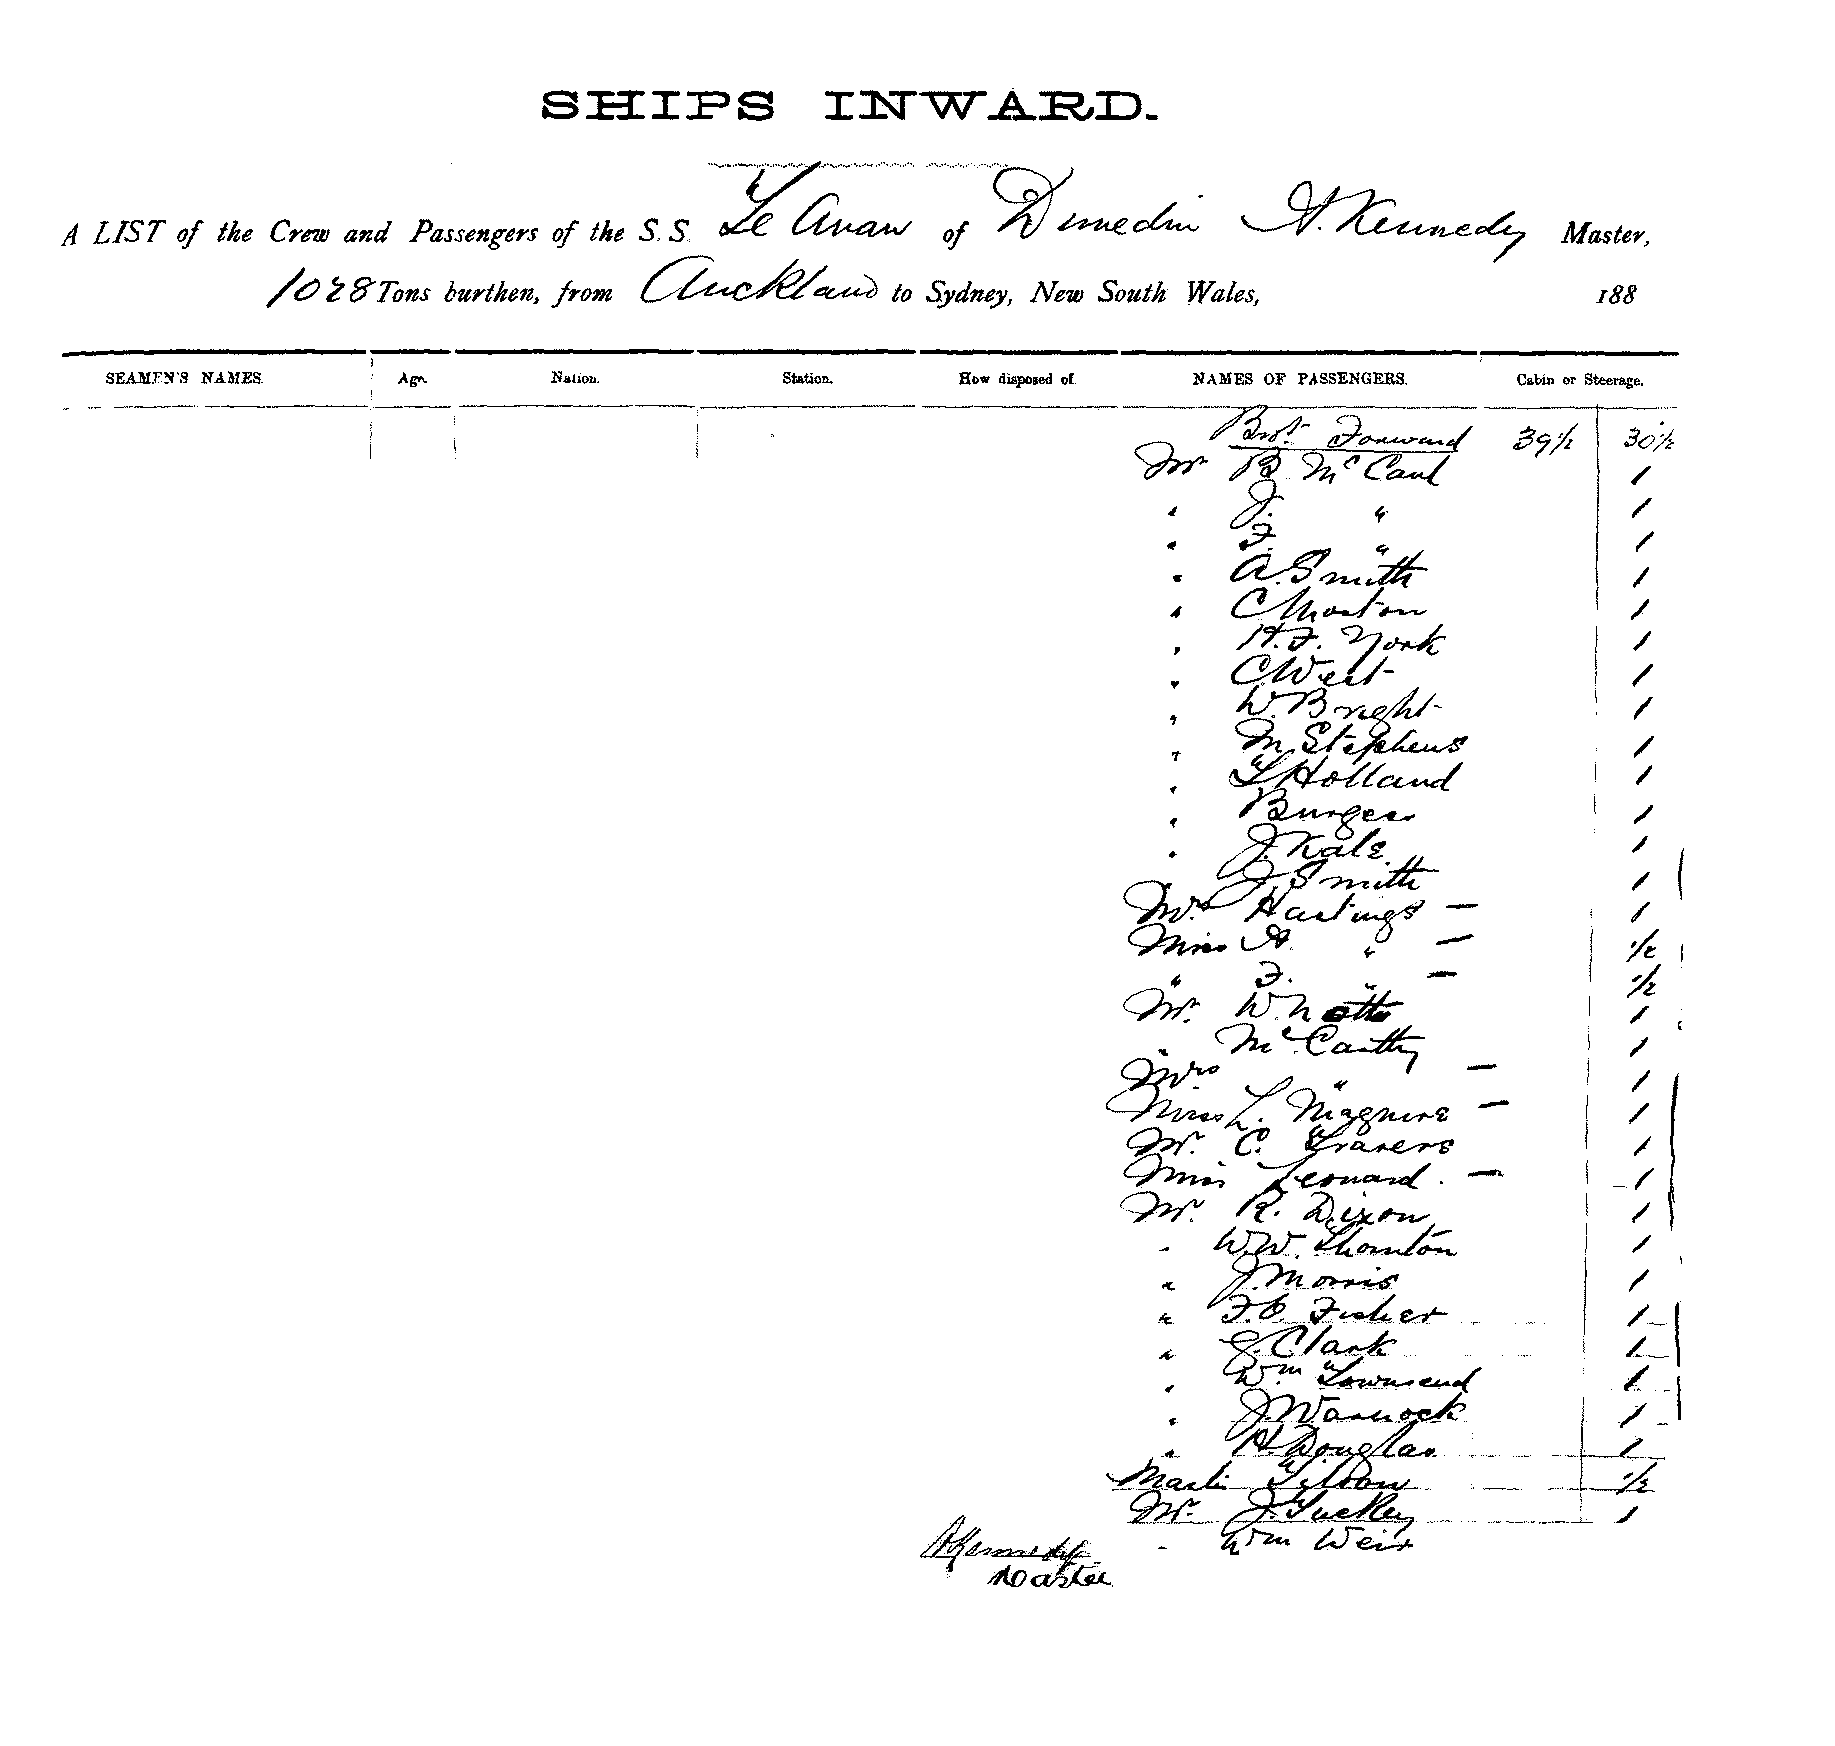 SHIPS INWARD.
A LIST of the Crew and Passengers of the S.S. Te Anau of Dunedin A. Kennedy Master,
1028 Tons burthen, from Auckland to Sydney, New South Wales, 188
SEAMEN'S NAMES. Age. Nation. Station. How disposed of. NAMES OF PASSENGERS. Cabin or Steerage.
Brot. Forward 39½ 30½
Mr B McCaul 1
" J. " 1
" F. " 1
" A. Smith 1
" C Morton 1
" H.F. York 1
" C West 1
" W. Bright 1
" M Stephens 1
" T Holland 1
" Burgess 1
" J. Kale 1
J. Smith 1
Mrs Hastings — 1
Miss A. " — ½
" F. " — ½
Mr. W. 1
" McCarthy 1
Mrs " — 1
Miss L. Maguire — 1
Mr. C. Travers 1
Miss Leonard — 1
Mr. R. Dixon 1
" W.W. Thornton 1
" J. Morris 1
" F.C. Fisher 1
" G. Clark 1
" Wm Townsend 1
" J. Warnock 1
" H. Douglas 1
½
Mr. J. Tuckey 1
" Wm Weir
A Kennedy
Master